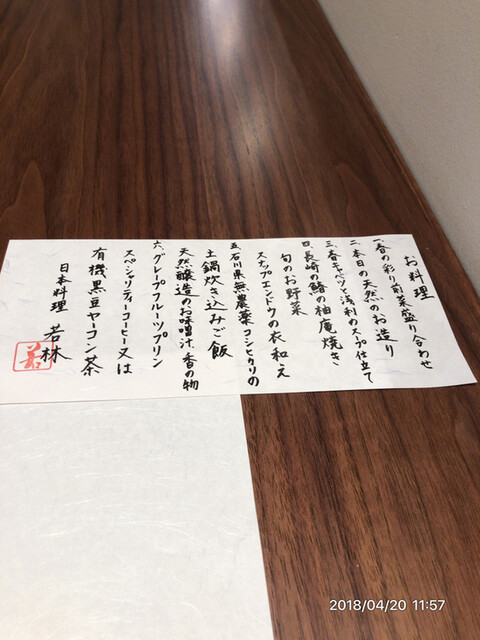 お料理
一、春の彩り前菜盛り合わせ
二、本日の天然のお造り
三、春キャベツと浅利のスープ仕立て
四、長崎の鰆の柚庵焼き
旬のお野菜
スナップエンドウの衣和え
五、石川県無農薬コシヒカリの
土鍋炊き込みご飯
天然醸造のお味噌汁、香の物
六、グレープフルーツプリン
スペシャリティーコーヒー又は
有機黒豆ヤーコン茶
日本料理 若林
若
2018/04/20 11:57